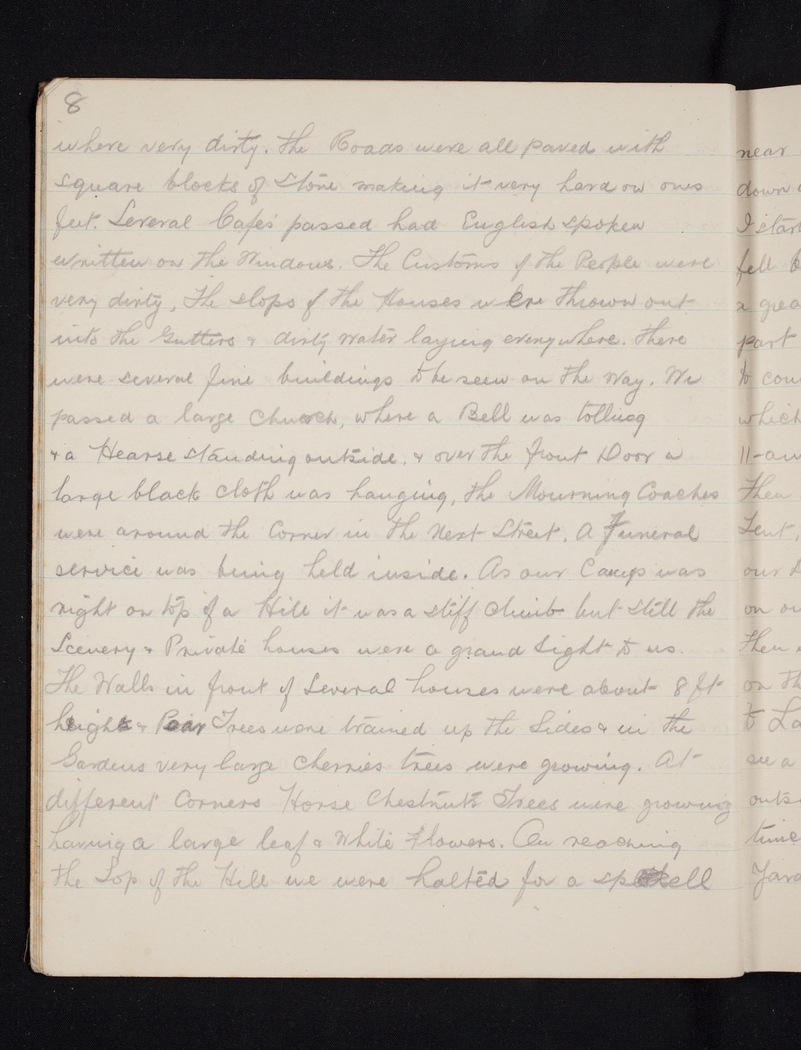 8
where very dirty. The Roads were all paved with
square blocks of Stone making it very hard on ones
feet. Several Cafes passed had English spoken
written on the Windows. The Customs of the People were
very dirty, The slops of the Houses were thrown out
into the Gutters & dirty water laying everywhere. There
were several fine buildings to be seen on the way. We
passed a large church, where a Bell was tolling
& a Hearse standing outside, & over the front Door a
large black cloth was hanging, the Mourning Coaches
were around the Corner in the next Street. A Funeral
service was being held inside. As our Camp was
right on top of a Hill it was a stiff climb but still the
Scenery & Private houses were a grand Sight to us.
The Walls in front of Several houses were about 8 ft
height & Pear Trees were trained up the Sides & in the
Gardens very large cherries trees were growing. At
different Corners Horse Chestnuts Trees were growing
having a large leaf & White Flowers. On reaching
the Top of the Hill we were halted for a spell
near
down
I start
fell
a grea
part
to cou
which
11-
then
Tent,
our
on ou
then
on th
to La
see a
outs
time
Yard